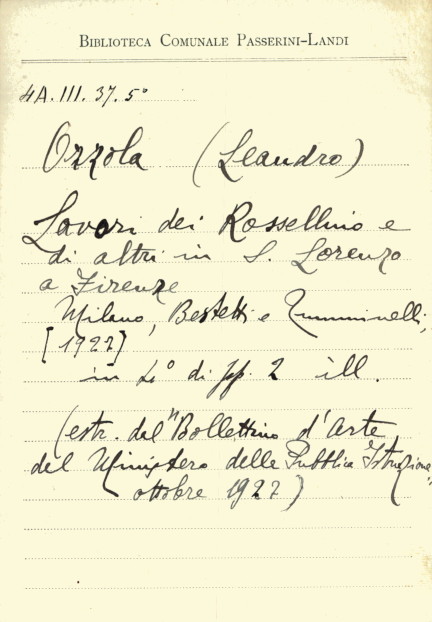 BIBLIOTECA COMUNALE PASSERINI-LANDI
4A. III. 37. 5°
Ozzola (Leandro)
Lavori dei Rossellino e
di altri in S. Lorenzo
a Firenze
Milano, Bestetti e Tumminelli,
[1927]
in 4° di pp. 2 ill.
(estr. dal "Bollettino d'Arte
del Ministero della Pubblica Istruzione"
ottobre 1927)